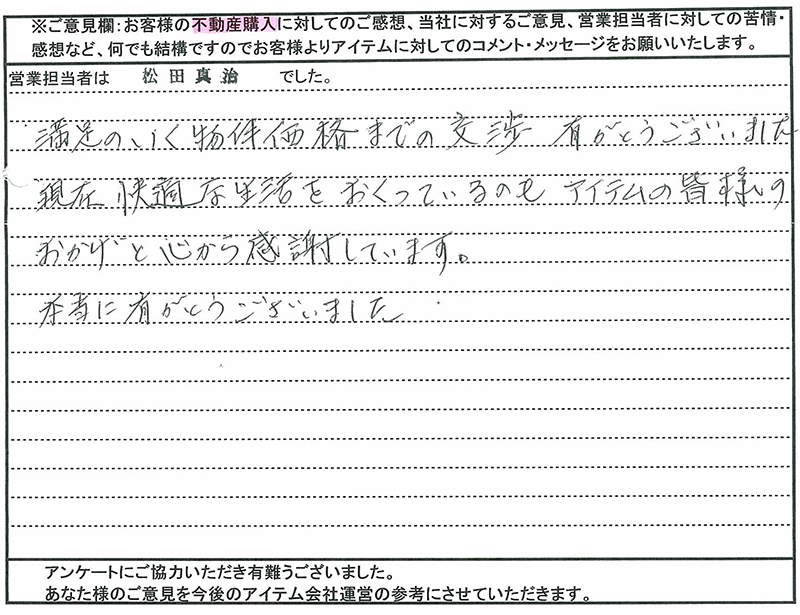 ※ご意見欄:お客様の不動産購入に対してのご感想、当社に対するご意見、営業担当者に対しての苦情・
感想など、何でも結構ですのでお客様よりアイテムに対してのコメント・メッセージをお願いいたします。
営業担当者は 松田真治 でした。
満足のいく物件価格までの交渉 有がとうございました
現在 快適な生活をおくっているのも アイテムの皆様の
おかげと心から感謝しています。
本当に有がとうございました
アンケートにご協力いただき有難うございました。
あなた様のご意見を今後のアイテム会社運営の参考にさせていただきます。